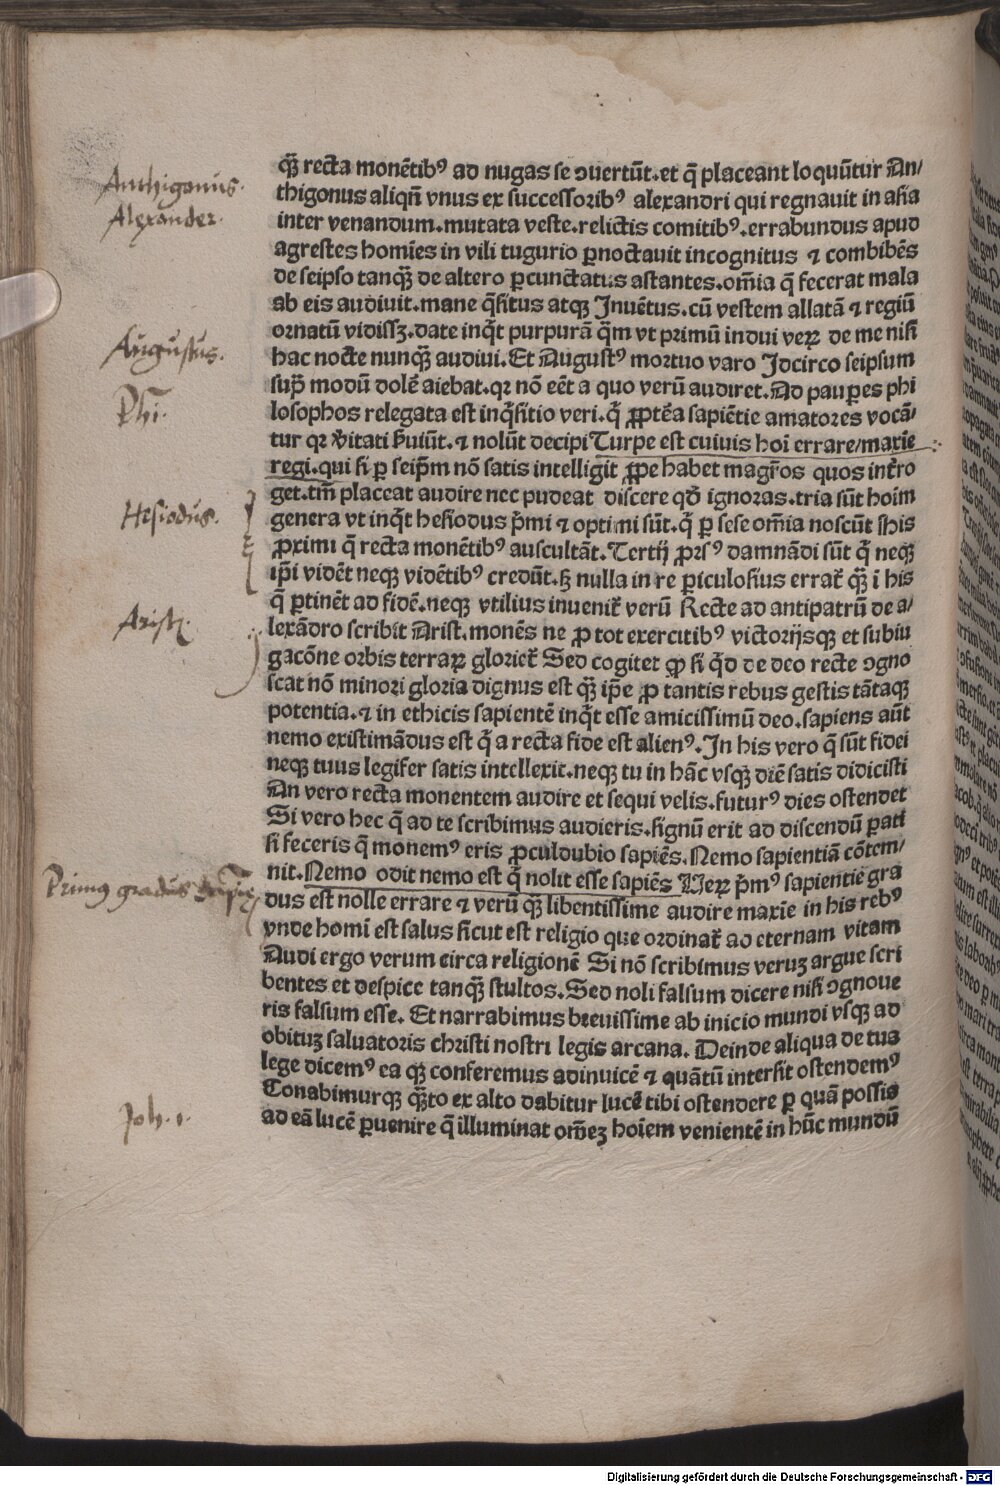 q̃ꝫ recta monētibꝰ ad nugas se ꝯuertūt.et q̄ placeant loquūtur An/
thigonus aliqñ vnus ex successoribꝰ alexandri qui regnauit in asia
inter venandum.mutata veste.relictis comitibꝰ.errabundus apud
agrestes homīes in vili tugurio ꝑnoctauit incognitus ⁊ combibēs
de seipso tanqꝫ̃ de altero ꝑcunctatus astantes.om̄ia q̄ fecerat mala
ab eis audiuit.mane q̄situs atqꝫ Inuētus.cū vestem allatā ⁊ regiū
ornatū vidissꝫ.date inq̄t purpurā q̄m vt primū indui veꝝ de me nisi
hac nocte nunqꝫ̃ audiui. Et Augustꝰ mortuo varo Idcirco seipsum
supͬ modū dolē aiebat.qꝛ nō eēt a quo verū audiret.Ad pauꝑes phi
losophos relegata est inq̄sitio veri.q̄ ꝓptēa sapiētie amatores vocā/
tur qꝛ v̄itati ẜuiūt.⁊ nolūt decipi Turpe est cuiuis hoī errare/maxīe
regi.qui si ꝑ seip̄m nō satis intelligit ꝓpe habet magr̄os quos intr̄o
get.tm̄ placeat audire nec pudeat discere qd̄ ignoras.tria sūt hoīm
genera vt inq̄t hesiodus p̄mi ⁊ optimi sūt.q̄ ꝑ sese om̄ia noscūt sꝫhis
ꝓximi q̄ recta monētibꝰ auscultāt.Tertij ꝓrsꝰ damnādi sūt q̄ neqꝫ
ip̄i vidēt neqꝫ vidētibꝰ credūt.sꝫ nulla in re ꝑiculosius errat̄ qꝫ̃ ī his
q̄ ꝑtinēt ad fidē.neqꝫ vtilius inuenit̄ verū Recte ad antipatrū de a/
lexādro scribit Arist.monēs ne ꝓ tot exercitibꝰ victorijsqꝫ et subiu
gacōne orbis terraꝝ gloriet̄ Sed cogitet ꝙ si q̄d de deo recte ꝯgno
scat nō minori gloria dignus est qꝫ̃ ip̄e ꝓ tantis rebus gestis tātaqꝫ
potentia.⁊ in ethicis sapientē inq̄t esse amicissimū deo.sapiens aūt
nemo existimādus est q̄ a recta fide est alienꝰ.In his vero q̄ sūt fidei
neqꝫ tuus legifer satis intellexit.neqꝫ tu in hāc vsqꝫ diē satis didicisti
An vero recta monentem audire et sequi velis.futurꝰ dies ostendet
Si vero hec q̄ ad te scribimus audieris.signū erit ad discendū ꝑati
si feceris q̄ monemꝰ eris ꝓculdubio sapiēs.Nemo sapientiā cōtem/
nit.Nemo odit nemo est q̄ nolit esse sapiēs Ueꝝ p̄mꝰ sapientie gra
dus est nolle errare ⁊ verū qꝫ libentissime audire maxīe in his rebꝰ
vnde homī est salus sicut est religio que ordinat̄ ad eternam vitam
Audi ergo verum circa religionē Si nō scribimus veruꝫ argue scri
bentes et despice tanqꝫ̃ stultos.Sed noli falsum dicere nisi ꝯgnoue
ris falsum esse. Et narrabimus breuissime ab inicio mundi vsqꝫ ad
obituꝫ saluatoris christi nostri legis arcana. Deinde aliqua de tua
lege dicemꝰ ea qꝫ conferemus adinuicē ⁊ quātū intersit ostendemꝰ
Conabimurqꝫ q̃ꝫto ex alto dabitur lucē tibi ostendere ꝑ quā possis
ad eā lucē ꝑuenire q̄ illuminat om̄eꝫ hoīem venientē in hūc mundū
Anthigonus.
Alexander.
Augustus.
Phi.
Hesiodus.
Arist.
Primus gradus sapīe
Joh. 1.
Digitalisierung gefördert durch die Deutsche Forschungsgemeinschaft - DFG